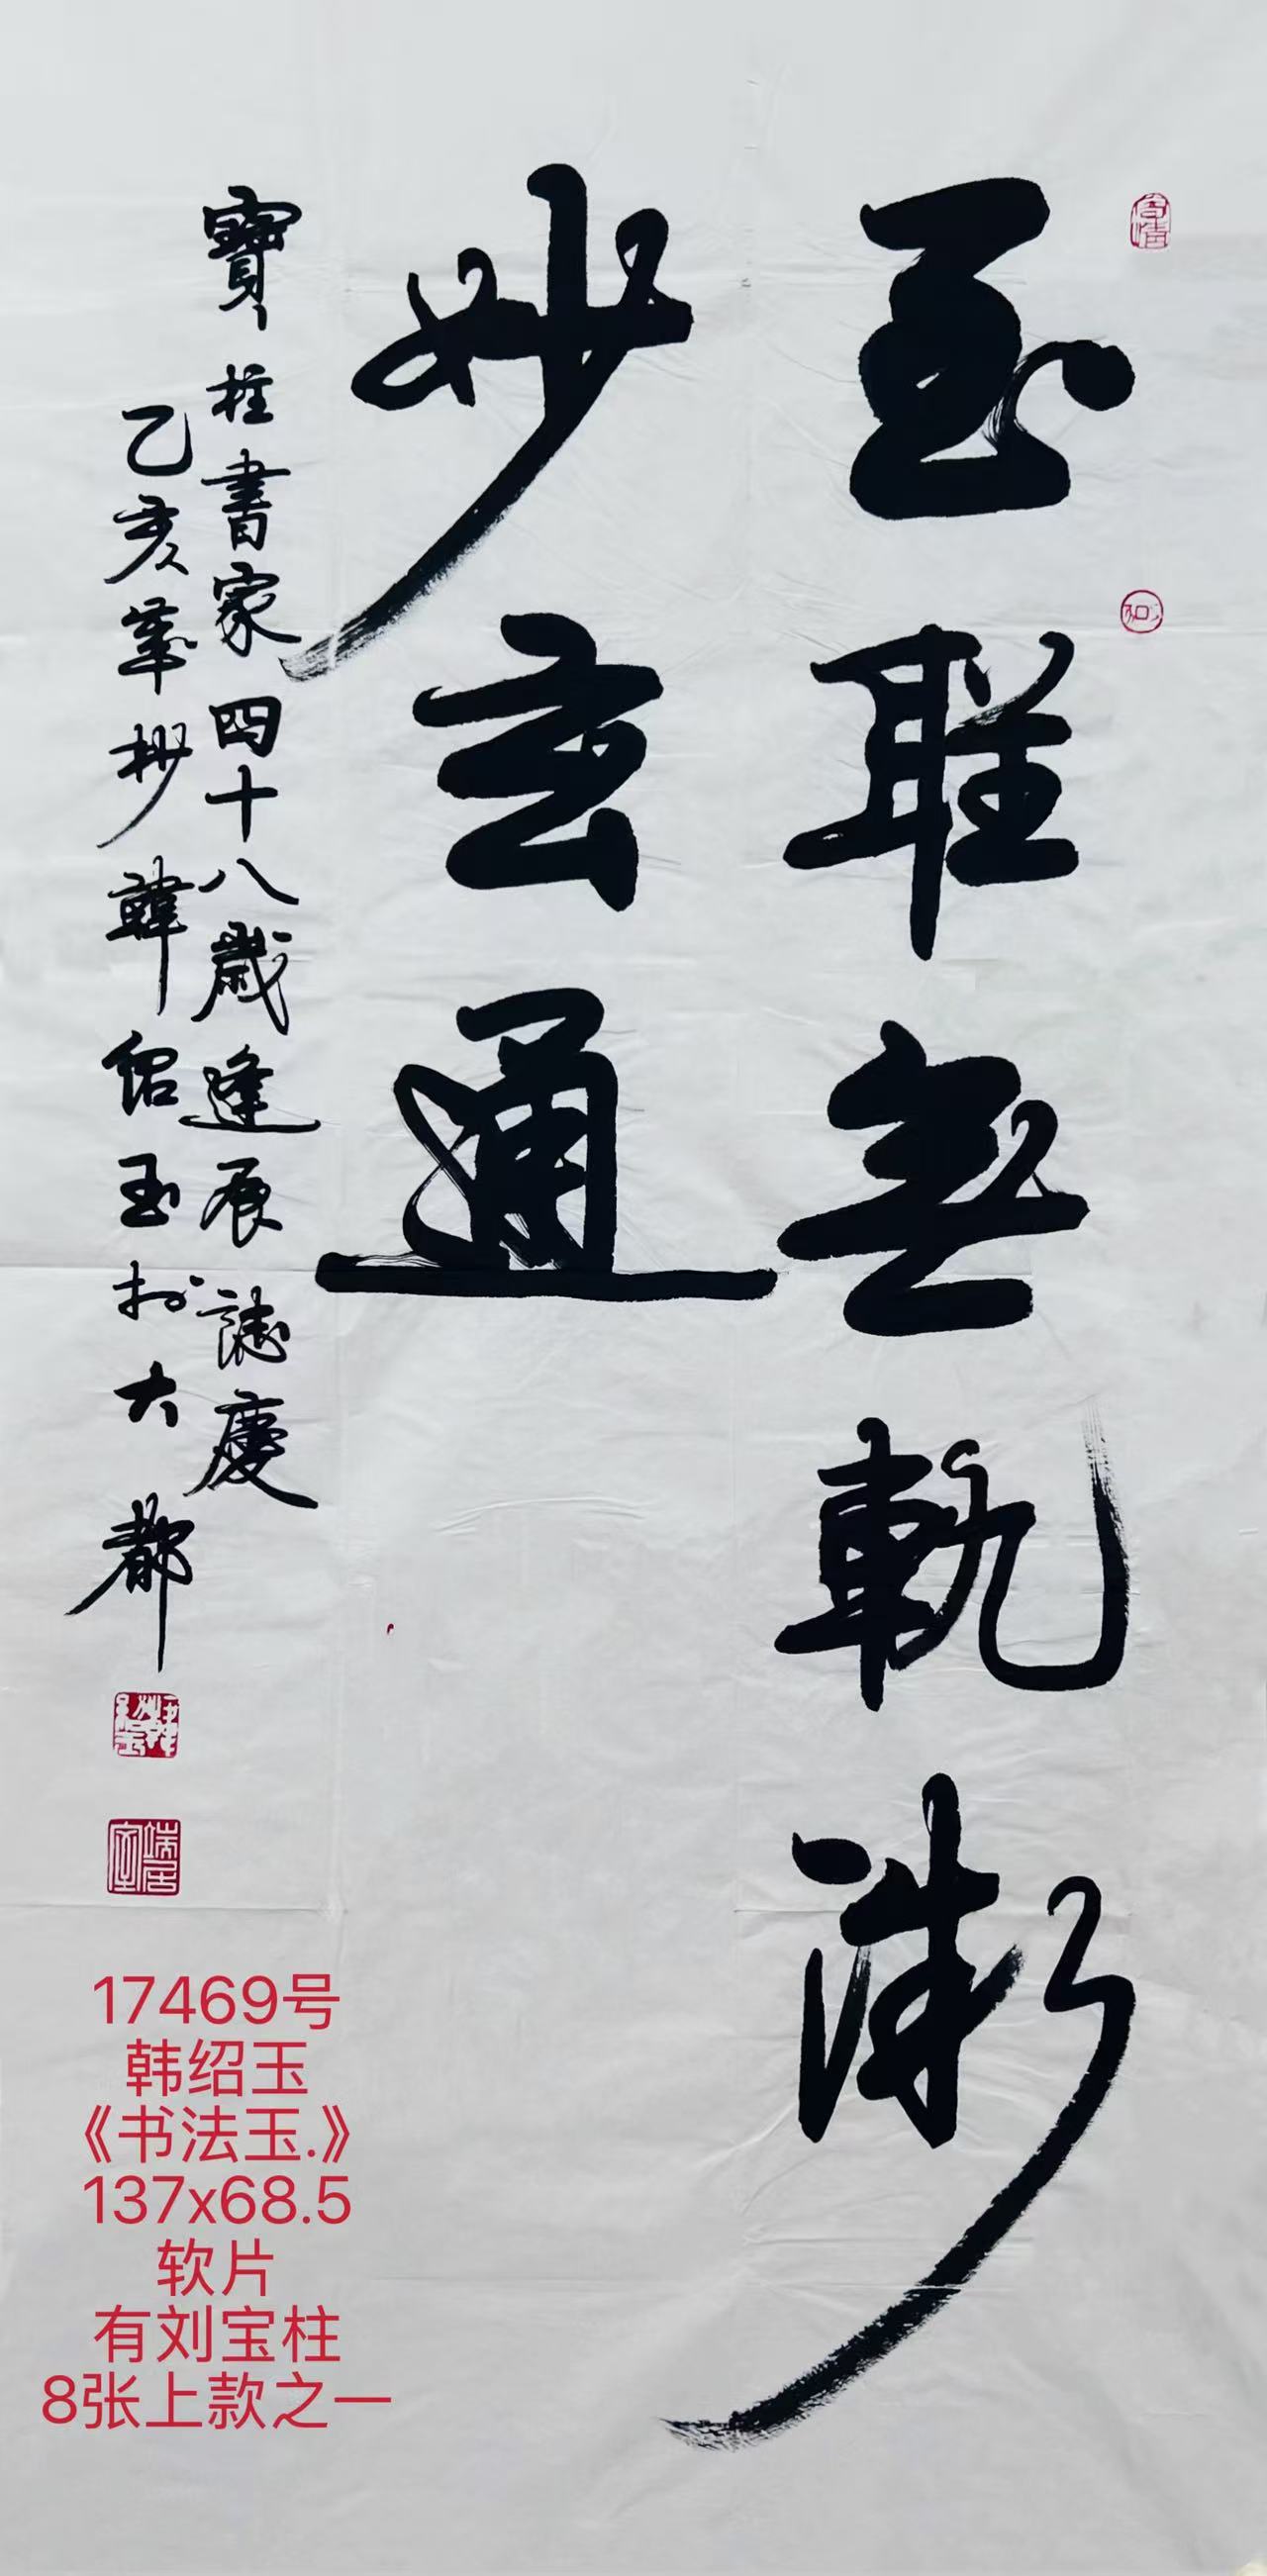 至聖無軌微
妙玄通
寶柱書家四十八歲逢辰誌慶
乙亥杪韓紹玉於大都
端居室
17469号
韩绍玉
《书法玉.》
137x68.5
软片
有刘宝柱
8张上款之一